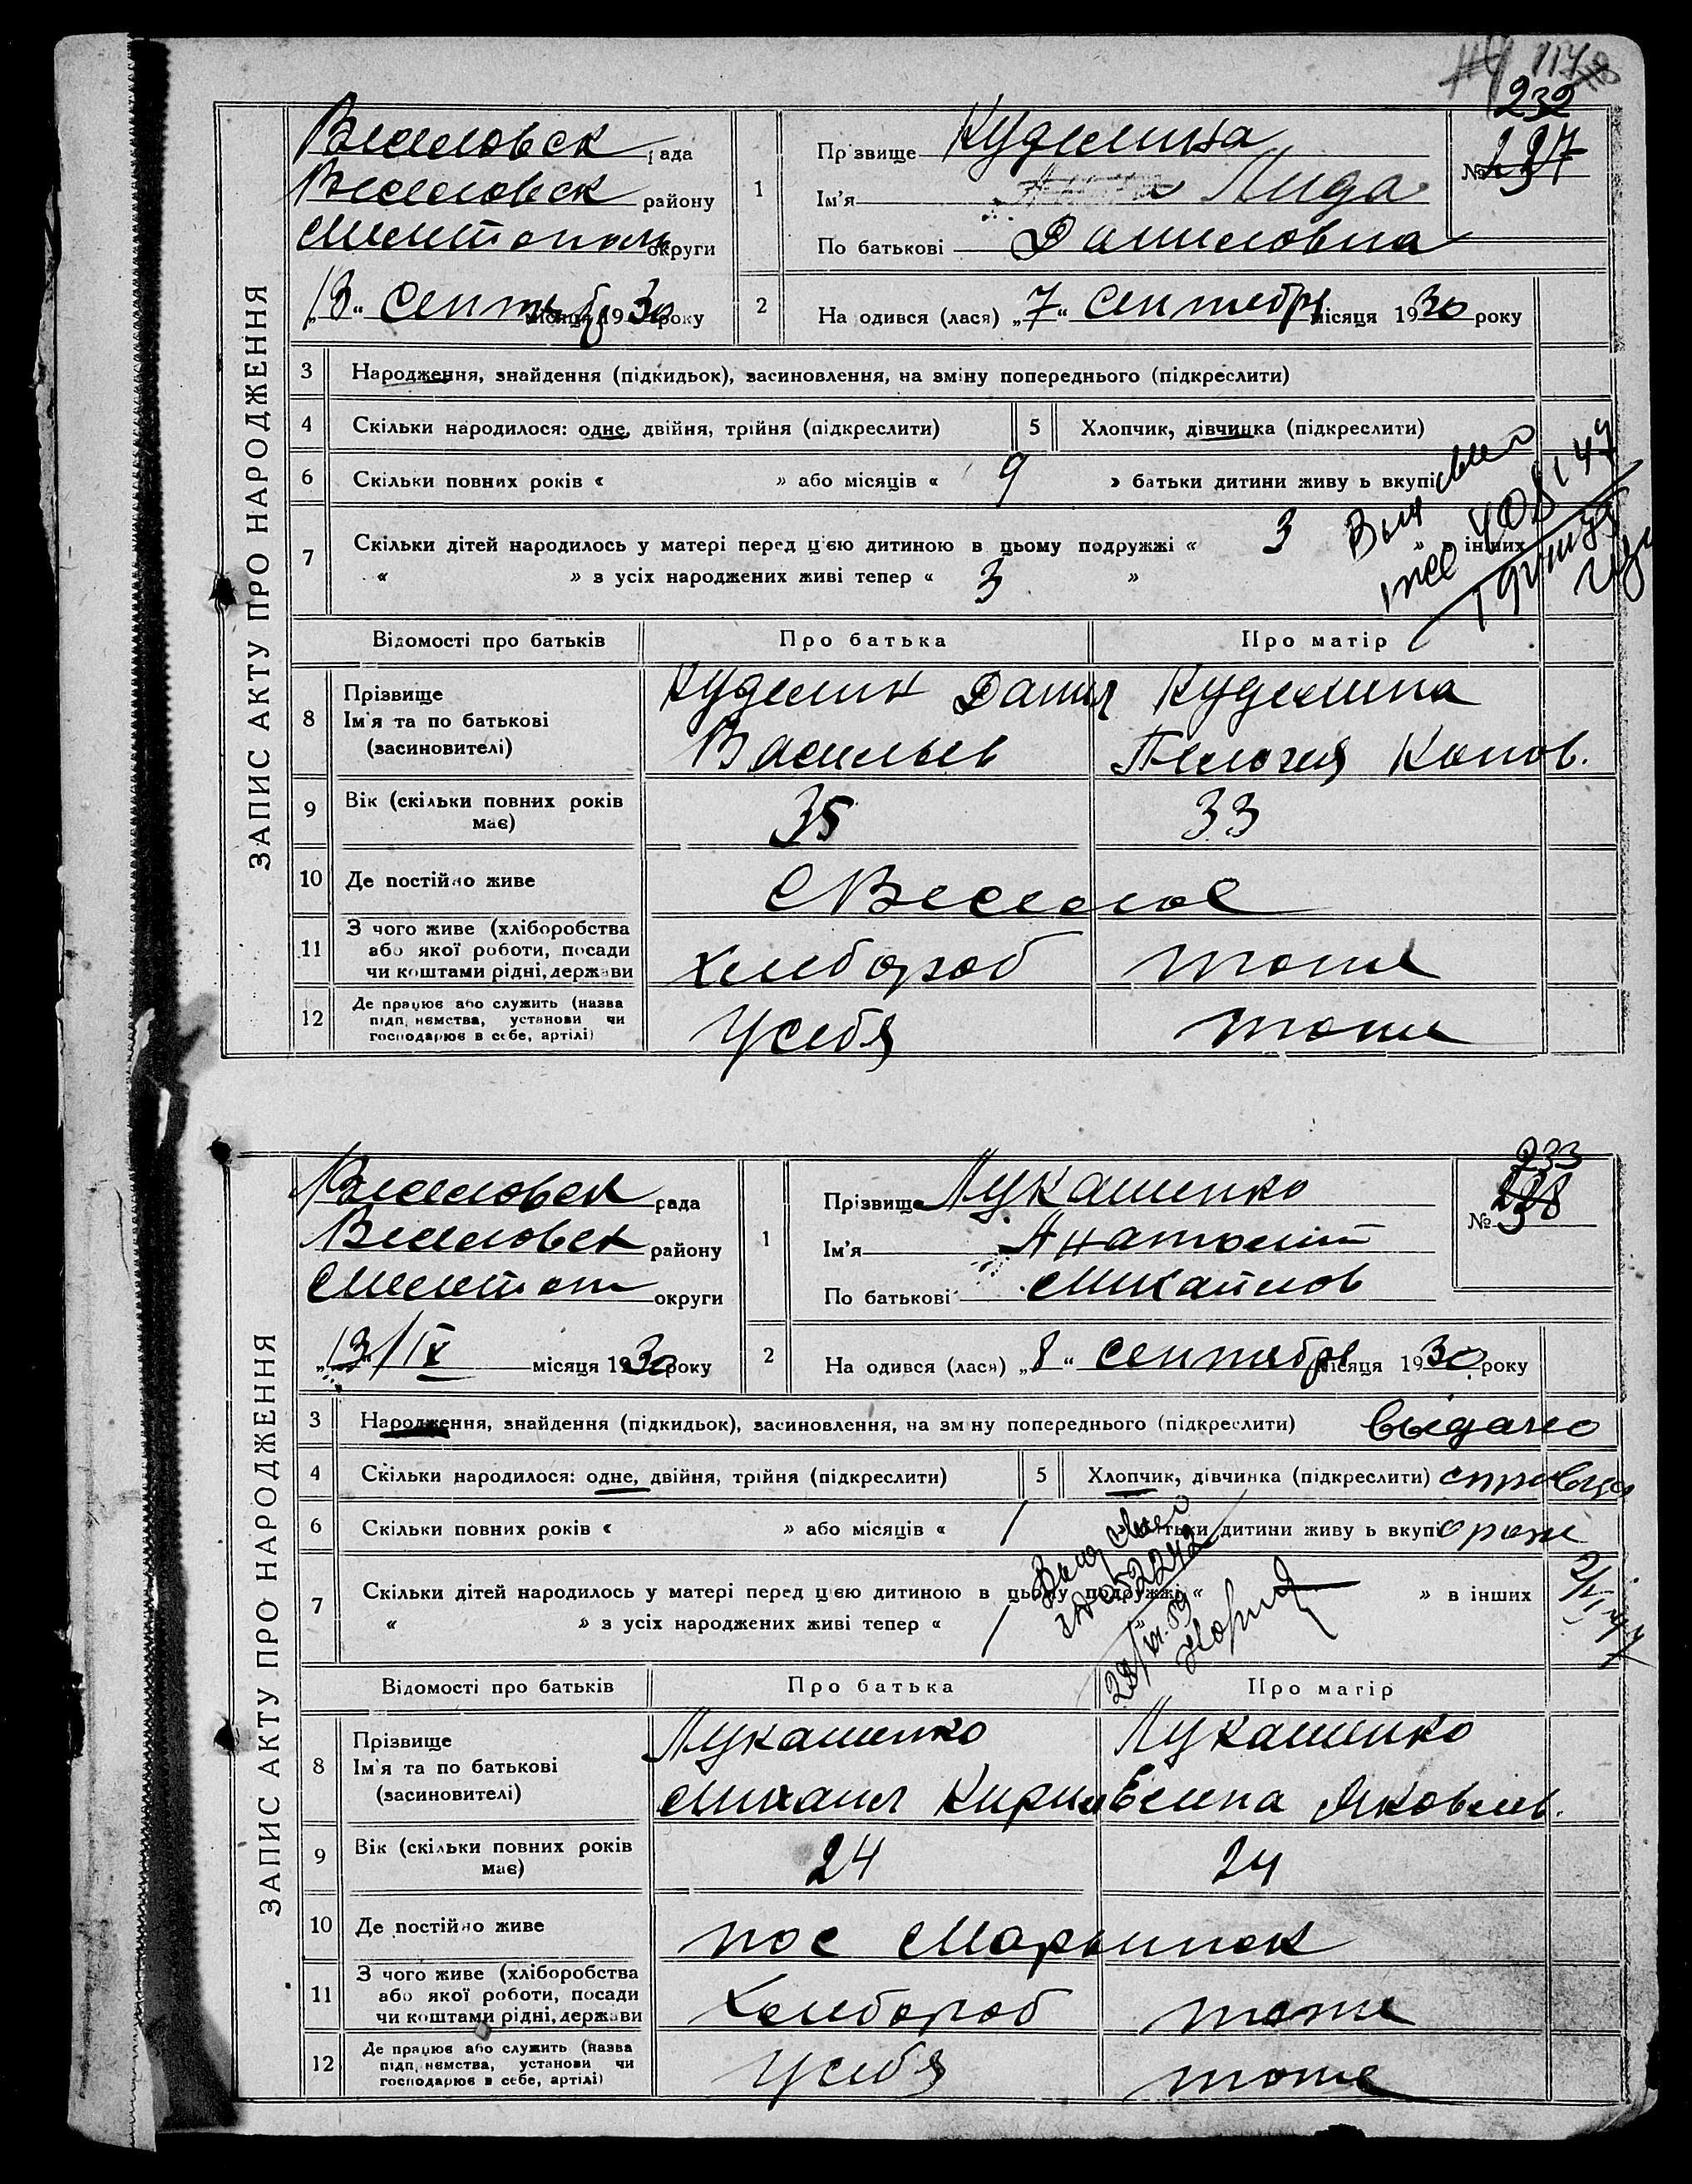 114
232
ЗАПИС АКТУ ПРО НАРОДЖЕННЯ
Веселовск рада
Веселовск району
Мелитополь округи
„13“ Сентяб місяця 1930 року
1
Прізвище Куделина
Ім'я Лида
По батькові Даниловна
№ 237
2
Народився (лася) „7“ Сентября місяця 1930 року
3 Народження, знайдення (підкидьок), засиновлення, на зміну попереднього (підкреслити)
4 Скільки народилося: одне, двійня, трійня (підкреслити)
5 Хлопчик, дівчинка (підкреслити)
6 Скільки повних років « » або місяців « 9 » батьки дитини живуть вкупі
7 Скільки дітей народилось у матері перед цією дитиною в цьому подружжі « 3 » в інших
« » з усіх народжених живі тепер « 3 »
Відомості про батьків Про батька Про матір
8 Прізвище Ім'я та по батькові (засиновителі)
Куделин Данил Васильев
Куделина Пелагея Конов.
9 Вік (скільки повних років має) 35 33
10 Де постійно живе С Веселое
11 З чого живе (хліборобства або якої роботи, посади чи коштами рідні, держави Хлебороб тоже
12 Де працює або служить (назва підприємства, установи чи господарює в себе, артілі) У себя тоже
233
ЗАПИС АКТУ ПРО НАРОДЖЕННЯ
Веселовск рада
Веселовск району
Мелитоп округи
„13“/IX місяця 1930 року
1
Прізвище Лукашенко
Ім'я Анатолий
По батькові Михайлов
№ 238
2
Народився (лася) „8“ Сентября місяця 1930 року
3 Народження, знайдення (підкидьок), засиновлення, на зміну попереднього (підкреслити) выдано
4 Скільки народилося: одне, двійня, трійня (підкреслити)
5 Хлопчик, дівчинка (підкреслити) справка
6 Скільки повних років « » або місяців « 1 батьки дитини живуть вкупі о рожд
7 Скільки дітей народилось у матері перед цією дитиною в цьому подружжі « » в інших
« » з усіх народжених живі тепер «
Відомості про батьків Про батька Про матір
8 Прізвище Ім'я та по батькові (засиновителі)
Лукашенко Михаил Кирил
Лукашенко Елена Яковлев.
9 Вік (скільки повних років має) 24 24
10 Де постійно живе пос Марьинск
11 З чого живе (хліборобства або якої роботи, посади чи коштами рідні, держави Хлебороб тоже
12 Де працює або служить (назва підприємства, установи чи господарює в себе, артілі) У себя тоже